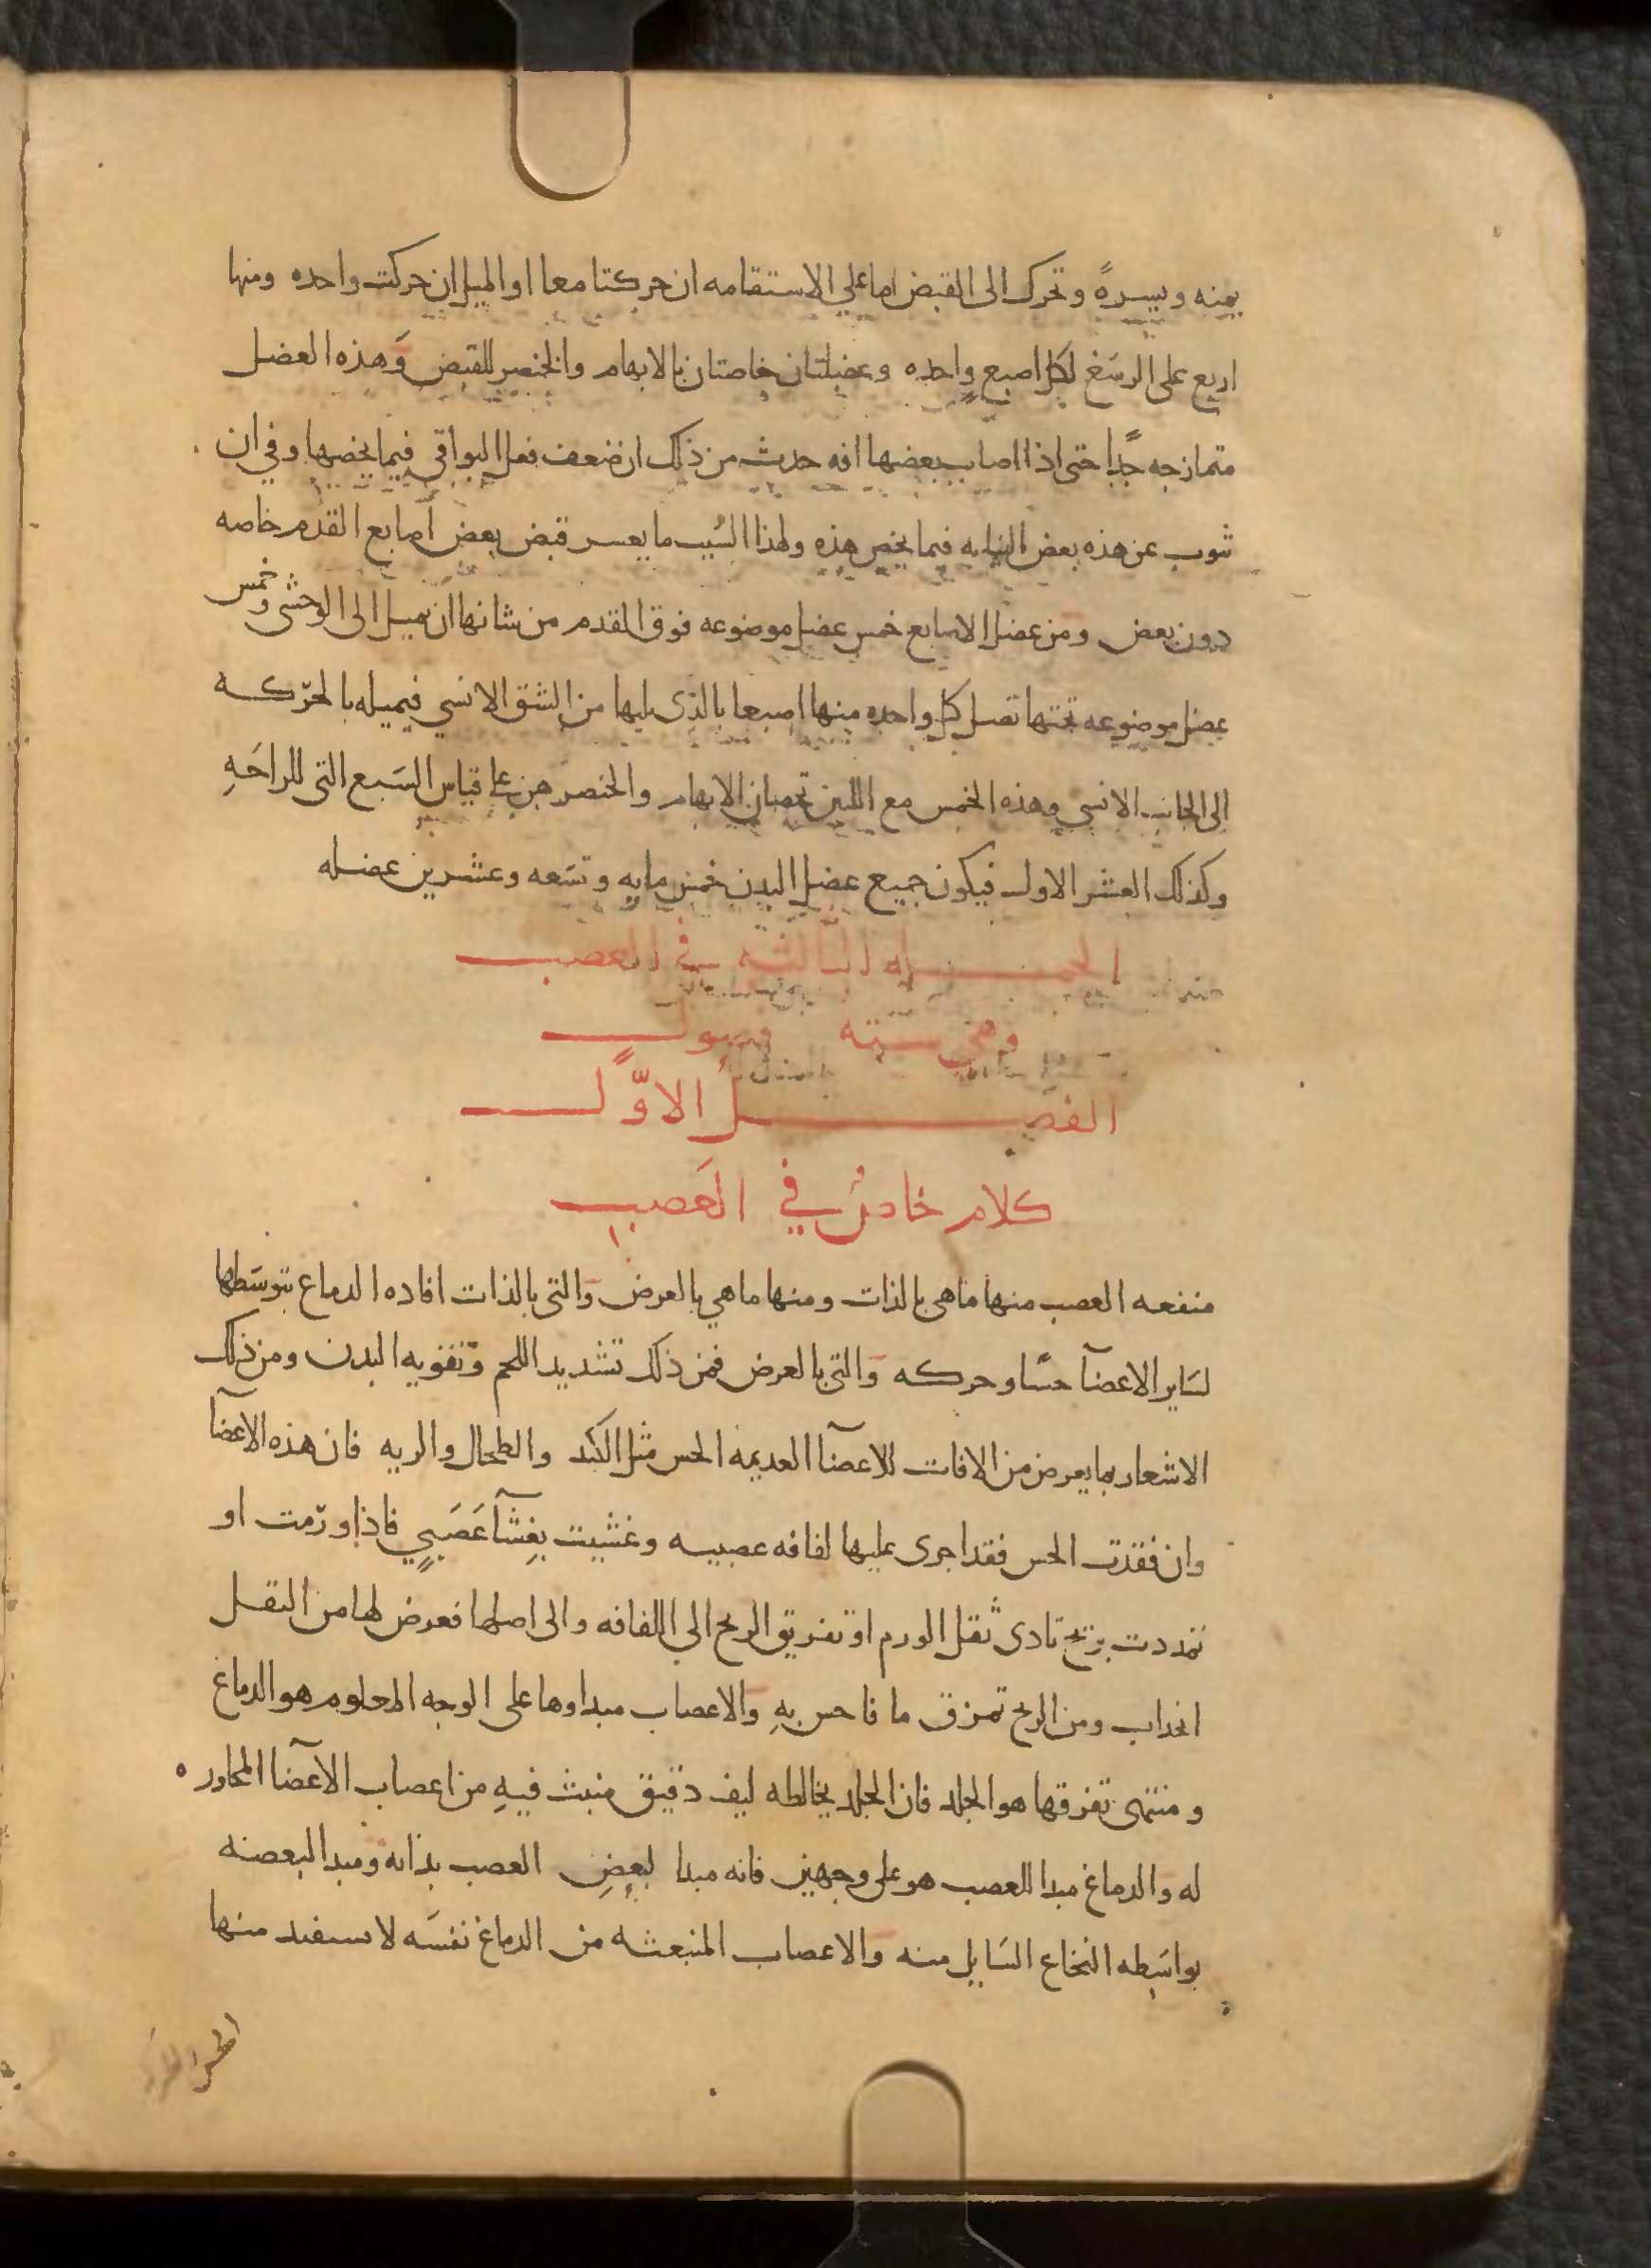 يمنه ويسرةً وتحرك الى القبض اما على الاستقامه ان حركتا معا او الميل ان حركت واحده ومنها
اربع على الرسغ لكل اصبع واحده وعضلتان خاصتان بالابهام والخنصر للقبض وهذه العضل
متمازجه جدًا حتى اذا اصاب بعضها افه حدث من ذلك ان ضعف فعل البواقي فيما يخصها وفي ان
تنوب عن هذه بعض النيابه فيما يخص هذه ولهذا السبب ما يعسر قبض بعض اصابع القدم خاصه
دون بعض ومن عضل الاصابع خمس عضل موضوعه فوق القدم من شانها ان تميل الى الوحشي وخمس
عضل موضوعه تحتها تصل كل واحده منها اصبعا بالذى يليها من الشق الانسي فيميله بالحركه
الى الجانب الانسي وهذه الخمس مع اللتين تخصان الابهام والخنصر هن على قياس السبع التي للراحَهِ
وكذلك العشر الاول فيكون جميع عضل البدن خمس مايه وتسعه وعشرين عضله
الجمله الثالثه في العصب
وهي سته فصول
الفصل الاوّل
كلام خاص في العَصب
منفعه العصب منها ما هي بالذات ومنها ما هي بالعرض والتي بالذات افاده الدماغ بتوسَطها
لسَاير الاعضآ حسًا وحركه والتي بالعرض فمن ذلك تشديد اللحم وتقويه البدن ومن ذلك
الاشعار بما يعرض من الافات للاعضآ العديمه الحس مثل الكبد والطحال والريه فان هذه الاعضآ
وان فقدت الحس فقد اجرى عليها لفافه عصبيه وغشيت بغِشآ عَصَبيٍ فاذا ورمت او
تمددت بريح تادى ثقل الورم او تفريق الريح الي اللفافه والى اصلها فعرض لها من الثقل
انجذاب ومن الريح تمزق ما فاحس بهِ والاعصاب مبداوها على الوجه المعلوم هو الدماغ
ومنتهى تفرقها هو الجلد فان الجلد يخالطه ليف دقيق منبث فيهِ من اعصاب الآعضا المجاور
له والدماغ مبدا للعصب هو على وجهين فانه مبدا لبعضِ العصب بذاته ومبدا لبعضه
بواسَطه النخاع السَايل منه والاعصاب المنبعثه من الدماغ نفسَه لا يستفيد منها
الحس